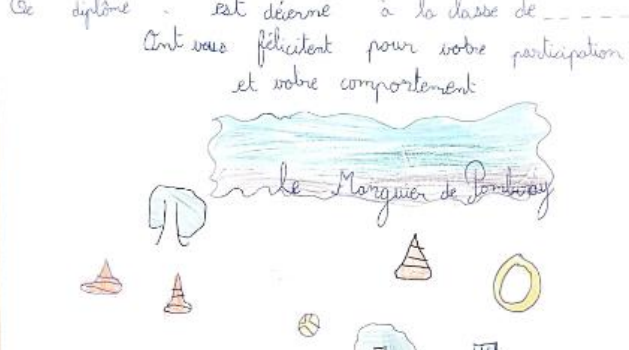 Ce diplôme est décerne à la classe de
Ont vous félicitent pour votre participation
et votre comportement
Le Marquier de